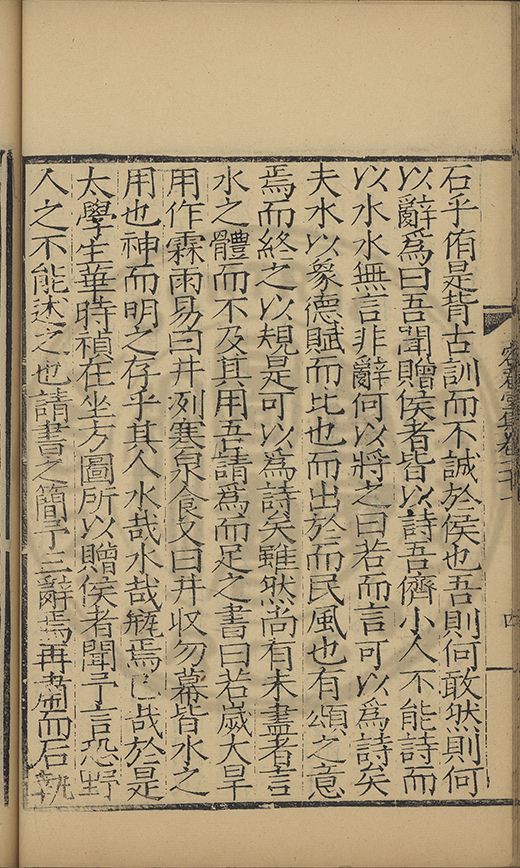 石乎侑是背古訓而不誠於侯也吾則何敢然則何
以辭爲曰吾聞贈侯者皆以詩吾儕小人不能詩而
以水水無言非辭何以將之曰若而言可以爲詩矣
夫水以象德賦而比也而出於而民風也有頌之意
焉而終之以規是可以爲詩矣雖然尚有未盡者言
水之體而不及其用吾請爲而足之書曰若歲大旱
用作霖雨易曰井列寒泉食又曰井收勿幕皆水之
用也神而明之存乎其人水哉水哉焉已哉於是
太學生華時禎在坐方圖所以贈侯者聞予言恐野
人之不能述之也請書之簡予三辭焉再而石執
四